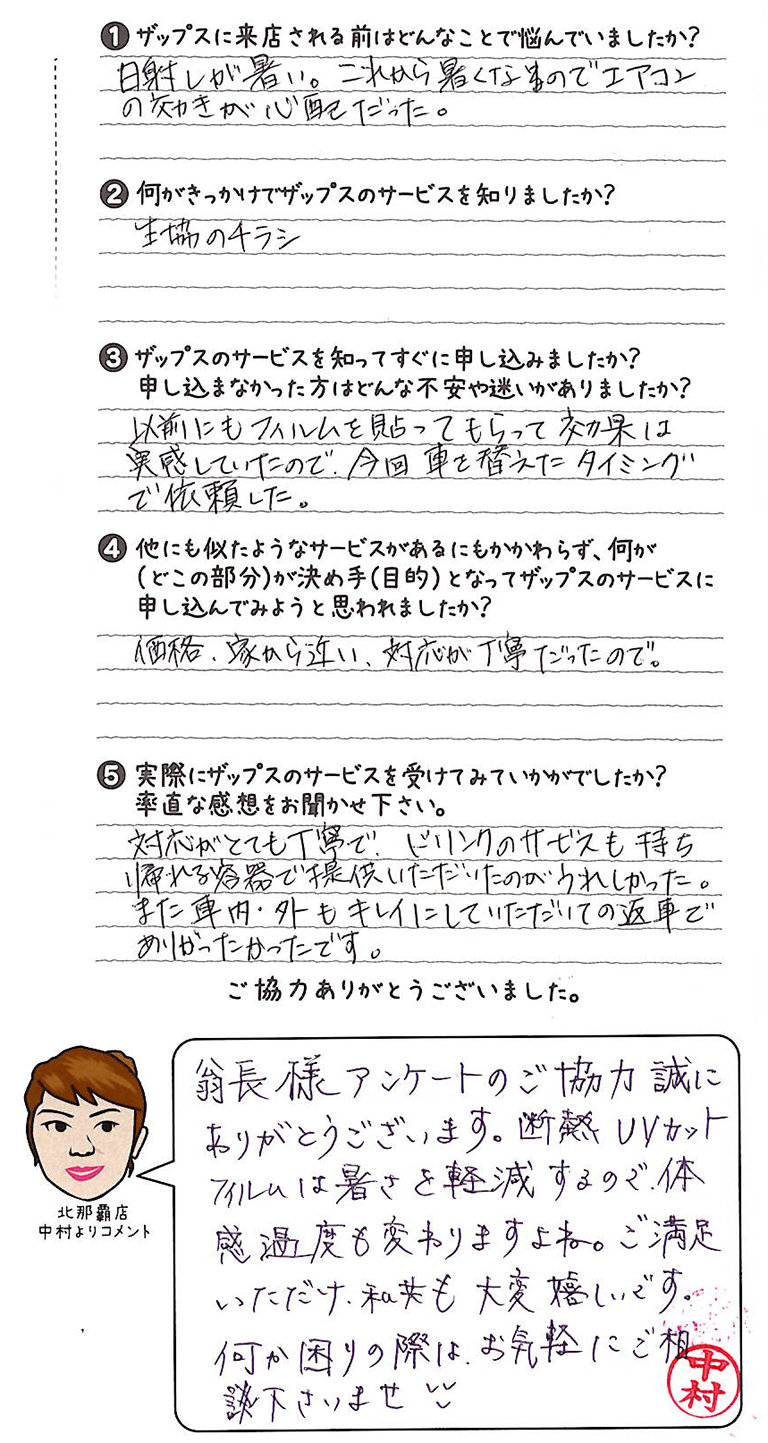 ❶ザップスに来店される前はどんなことで悩んでいましたか?
日射しが暑い。これから暑くなるのでエアコン
の効きが心配だった。
❷何がきっかけでザップスのサービスを知りましたか?
生協のチラシ
❸ザップスのサービスを知ってすぐに申し込みましたか?
申し込まなかった方はどんな不安や迷いがありましたか?
以前にもフィルムを貼ってもらって効果は
実感していたので、今回車を替えたタイミング
で依頼した。
❹他にも似たようなサービスがあるにもかかわらず、何が
(どこの部分)が決め手(目的)となってザップスのサービスに
申し込んでみようと思われましたか?
価格、家から近い、対応が丁寧だったので。
❺実際にザップスのサービスを受けてみていかがでしたか?
率直な感想をお聞かせ下さい。
対応がとても丁寧で、ドリンクのサービスも持ち
帰れる容器で提供いただいたのがうれしかった。
また車内・外もキレイにしていただいての返車で
ありがったかったです。
ご協力ありがとうございました。
翁長様アンケートのご協力誠に
ありがとうございます。断熱UVカット
フィルムは暑さを軽減するので、体
感温度も変わりますよね。ご満足
いただけ、私共も大変嬉しいです。
何か困りの際は、お気軽にご相
談下さいませ
北那覇店
中村よりコメント
中村